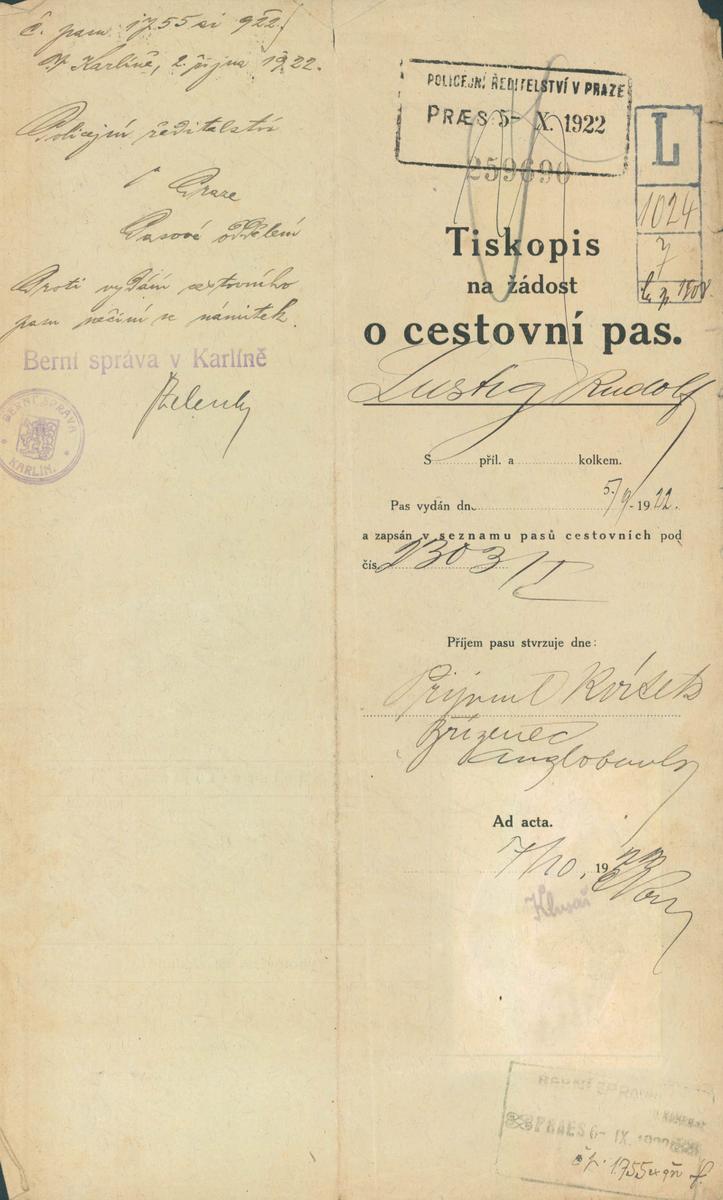 č. pam 1755 si 922
V Karlíně, 2. října 1922.
Policejní ředitelství
v Praze
Pasové oddělení
Proti vydání cestovního
pasu nečiní se námitek.
Berní správa v Karlíně
BERNÍ SPRÁVA
KARLÍN.
POLICEJNÍ ŘEDITELSTVÍ V PRAZE
PRÆS 5- X. 1922
259690
L
1024
7
Tiskopis
na žádost
o cestovní pas.
Lustig Rudolf
S příl. a kolkem.
Pas vydán dne 5/9-1922.
a zapsán v seznamu pasů cestovních pod
čís. 2303/I
Příjem pasu stvrzuje dne:
anglobanky
Ad acta.
7/10. 1922
PRAES 6- IX. 1922
1755